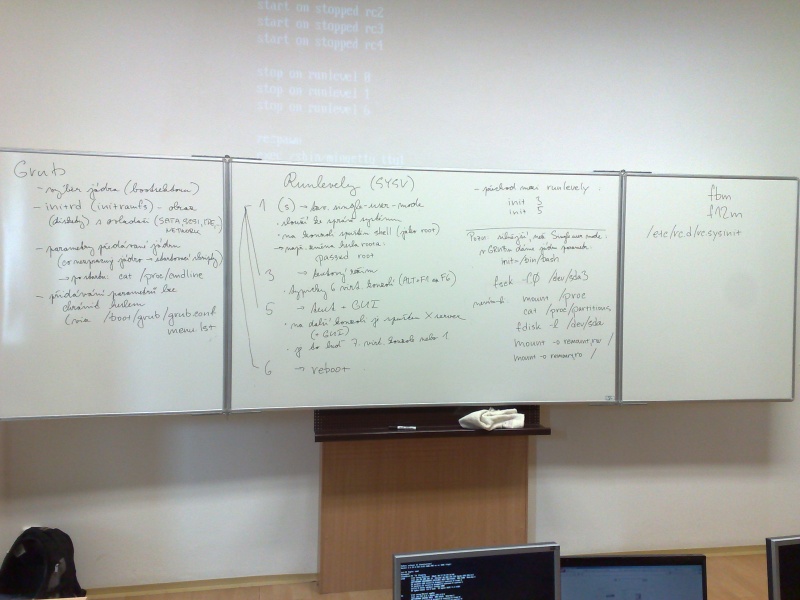 start on stopped rc2
start on stopped rc3
start on stopped rc4
stop on runlevel 0
stop on runlevel 1
stop on runlevel 6
respawn
Grub
- výběr jádra (bootsektoru)
- initrd (initramfs) - obraz
(diskety) s ovladači (SATA, SCSI, IDE,
NETWORK
- parametry předávání jádru
→ po startu: cat /proc/cmdline
- přidávání parametrů lze
chránit heslem
(via /boot/grub/grub.conf
menu.lst
Runlevely (SYSV)
1 (s) → tzv. single-user-mode
- slouží ke správě systému
- na konzoli spuštěn shell (jako root)
- např. změna hesla roota
passwd root
3 → textový režim
• typicky 6 virt. konzolí (ALT+F1 až F6)
5 → text + GUI
• na další konzoli je spuštěn X server
(+ GUI)
• je to buď 7. virt. konzole nebo 1
6 → reboot
- přechod mezi runlevely
init 3
init 5
Pozn: než Single user mode
v GRUBu dáme jádru parametr
init=/bin/bash
fsck -CØ /dev/sda3
mount /proc
cat /proc/partitions
fdisk -l /dev/sda
mount -o remount,rw /
mount -o remount,ro /
fbm
f12m
/etc/rc.d/rc.sysinit